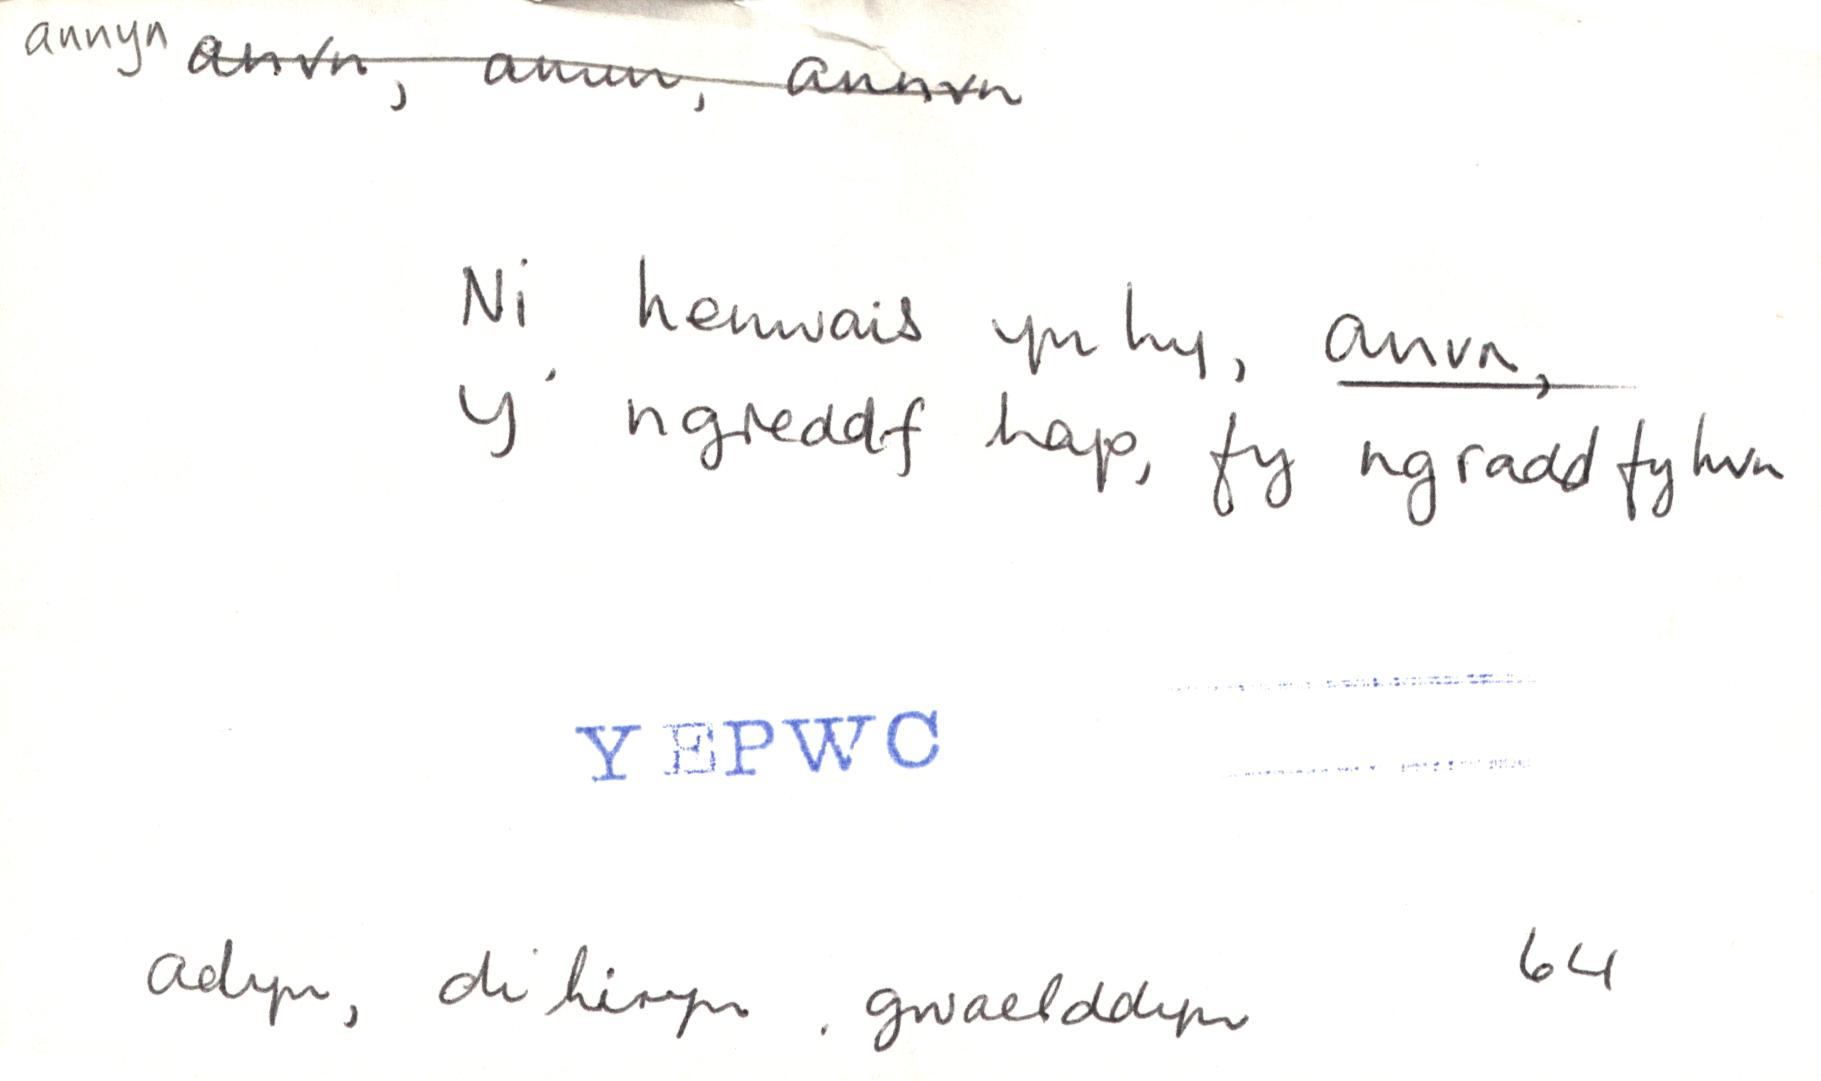 annyn anvn, anun, annvn
Ni henwais yn hy, anvn,
Y' ngreddf hap, fy ngradd fy hvn
YEPWC
adyn, dihiryn, gwaelddyn 64